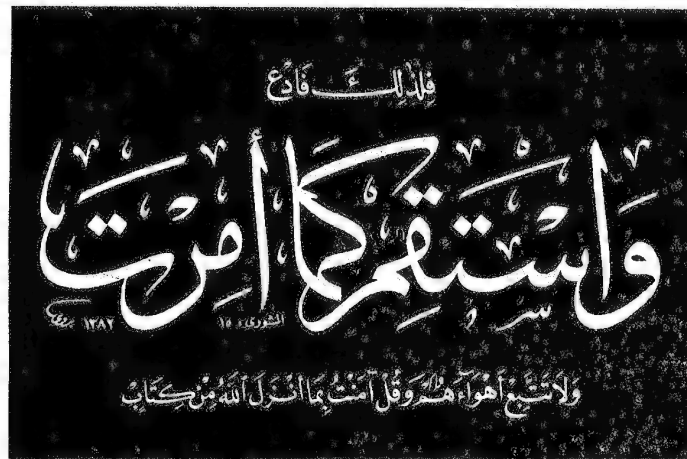 فَلِذَٰلِكَ فَادْعُ
وَاسْتَقِمْ كَمَا أُمِرْتَ
الشورى : ١٥
١٣٨٢
وَلَا تَتَّبِعْ أَهْوَاءَهُمْ وَقُلْ آمَنْتُ بِمَا أَنْزَلَ اللهُ مِنْ كِتَابٍ